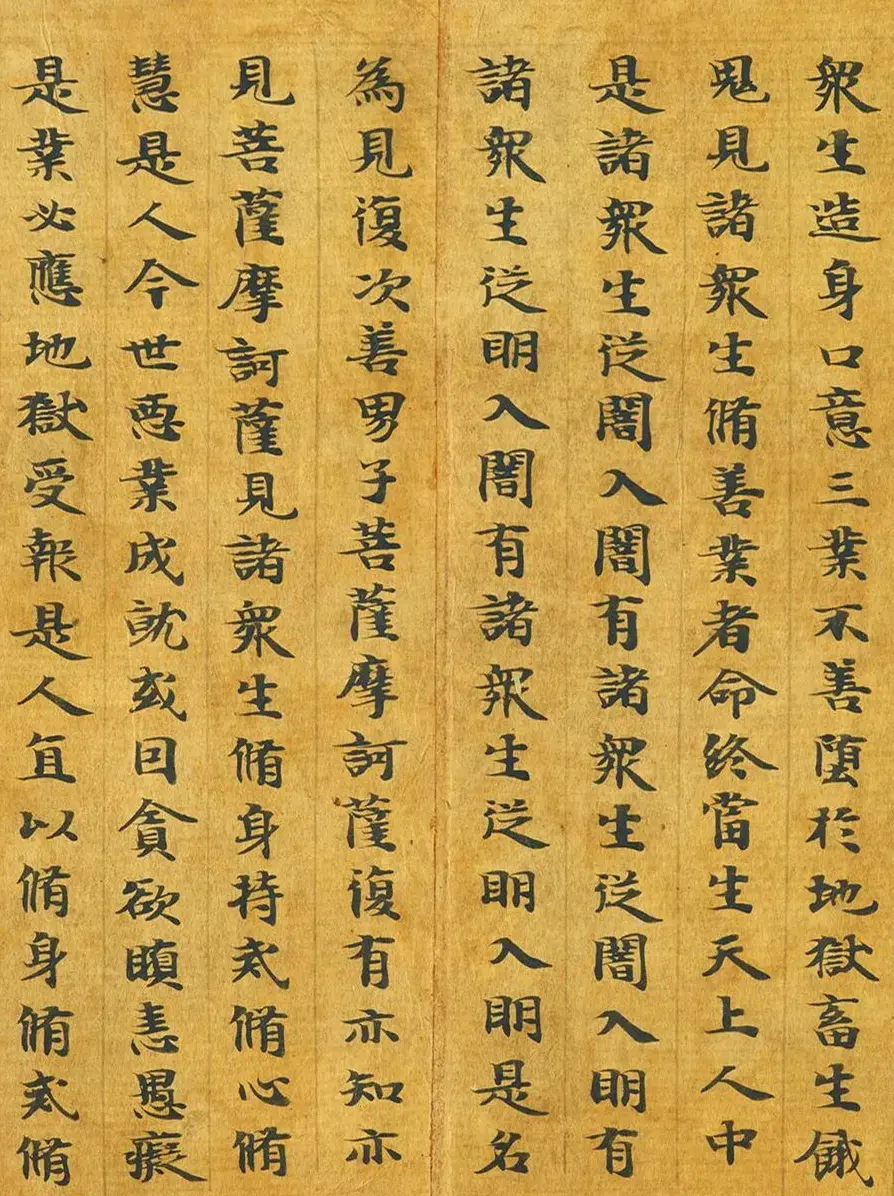 衆生造身口意三業不善墮於地獄畜生餓
鬼見諸衆生脩善業者命終當生天上人中
是諸衆生從闇入闇有諸衆生從闇入明有
諸衆生從明入闇有諸衆生從明入明是名
為見復次善男子菩薩摩訶薩復有亦知亦
見菩薩摩訶薩見諸衆生脩身持戒脩心脩
慧是人今世惡業成就或因貪欲瞋恚愚癡
是業必應地獄受報是人直以脩身脩戒脩